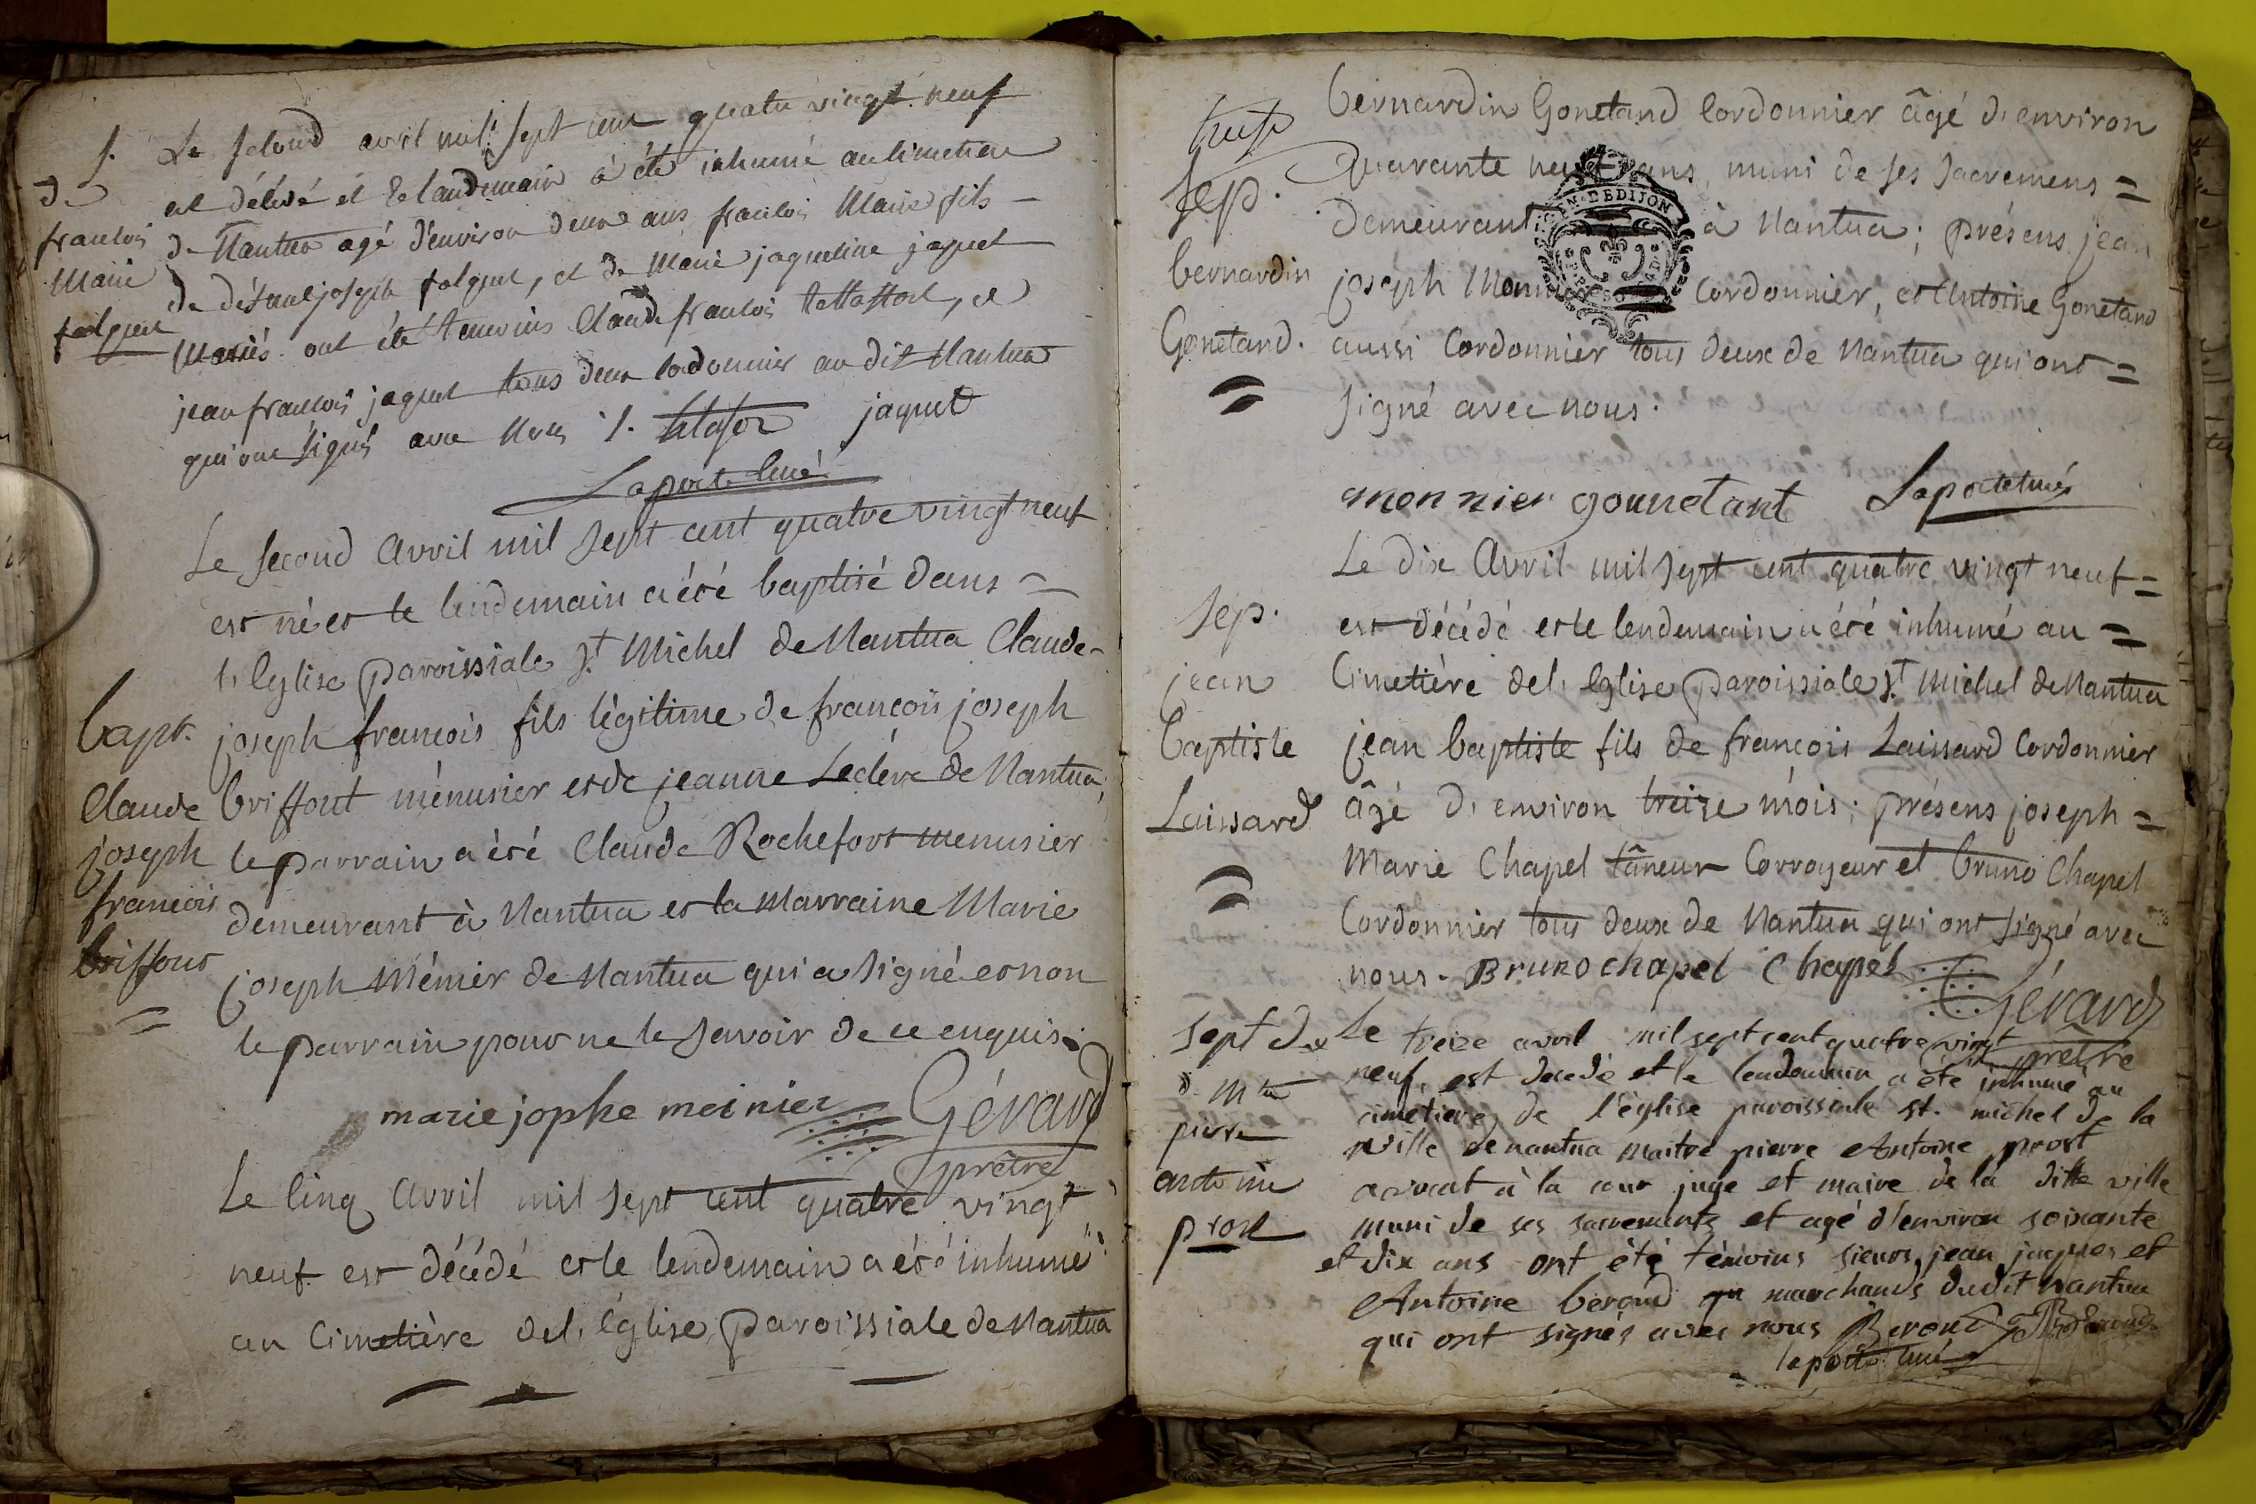 S.
de
francois
Marie
falquet
Le second avril mil sept cent quatre vingt neuf
est décédé et le landemain à été inhumé au cimetiere
de Nantua agé d'environ deux ans francois Marie fils
de joseph falquet, et de Marie jaqueline jaquet
Mariés. ont été temoins Claude francois, et
jean francois jaquet tous deux cordonnier au dit Nantua
qui ont signés avec Nous jaquet
Laporte Curé
Bapt.
Claude
joseph
francois
briffout
Le second Avril mil sept cent quatre vingt neuf
est né et le lendemain a été baptisé dans =
l'Eglise paroissiale St Michel de Nantua Claude-
joseph francois fils légitime de francois joseph
briffout ménusier et de jeanne Leclerc de Nantua;
le parrain a été Claude Rochefort menusier
demeurant à Nantua et la Marraine Marie
joseph Ménier de Nantua qui a signé et non
le parrain pour ne le savoir de ce enquis.
marie jophe meinier Gérard
prêtre
Le Cinq Avril mil sept cent quatre vingt
neuf est décédé et le lendemain a été inhumé
au Cimetière de l'église paroissiale de Nantua
sep.
bernardin
Gonetand.
bernardin Gonetand Cordonnier âgé d'environ
Quarante neuf ans, muni de ses sacremens =
demeurant à Nantua; présens jean
GEN. DE DIJON
joseph Monnier Cordonnier, et Antoine Gonetand
aussi Cordonnier tous deux de Nantua qui ont =
signé avec nous.
monnier gounetant Laporte curé
Sep.
jean
Baptiste
Laissard
Le dix Avril mil sept cent quatre vingt neuf =
est décédé et le lendemain a été inhumé au =
Cimetière de l'église paroissiale St Michel de Nantua
jean baptiste fils de francois Laissard Cordonnier
âgé d'environ treize mois; présens joseph =
Marie Chapel tâneur Corroyeur et bruno Chapel
Cordonnier tous deux de Nantua qui ont signé avec
nous. Bruno chapel Chapel Gérard
prêtre
Sept de
pierre
antoine
prost
Le treize avril mil sept cent quatre vingt
neuf, est decedé et le lendemain a été inhumé au
cimetiere de l'église paroissiale st. michel de la
ville de nantua maitre pierre Antoine prost
avocat à la cour juge et maire de la ditte ville
muni de ses sacrements et agé d'environ soixante
et dix ans ont été témoins sieurs jean jacques et
Antoine béroud marchands dudit nantua
qui ont signés avec nous Beroud
laporte curé